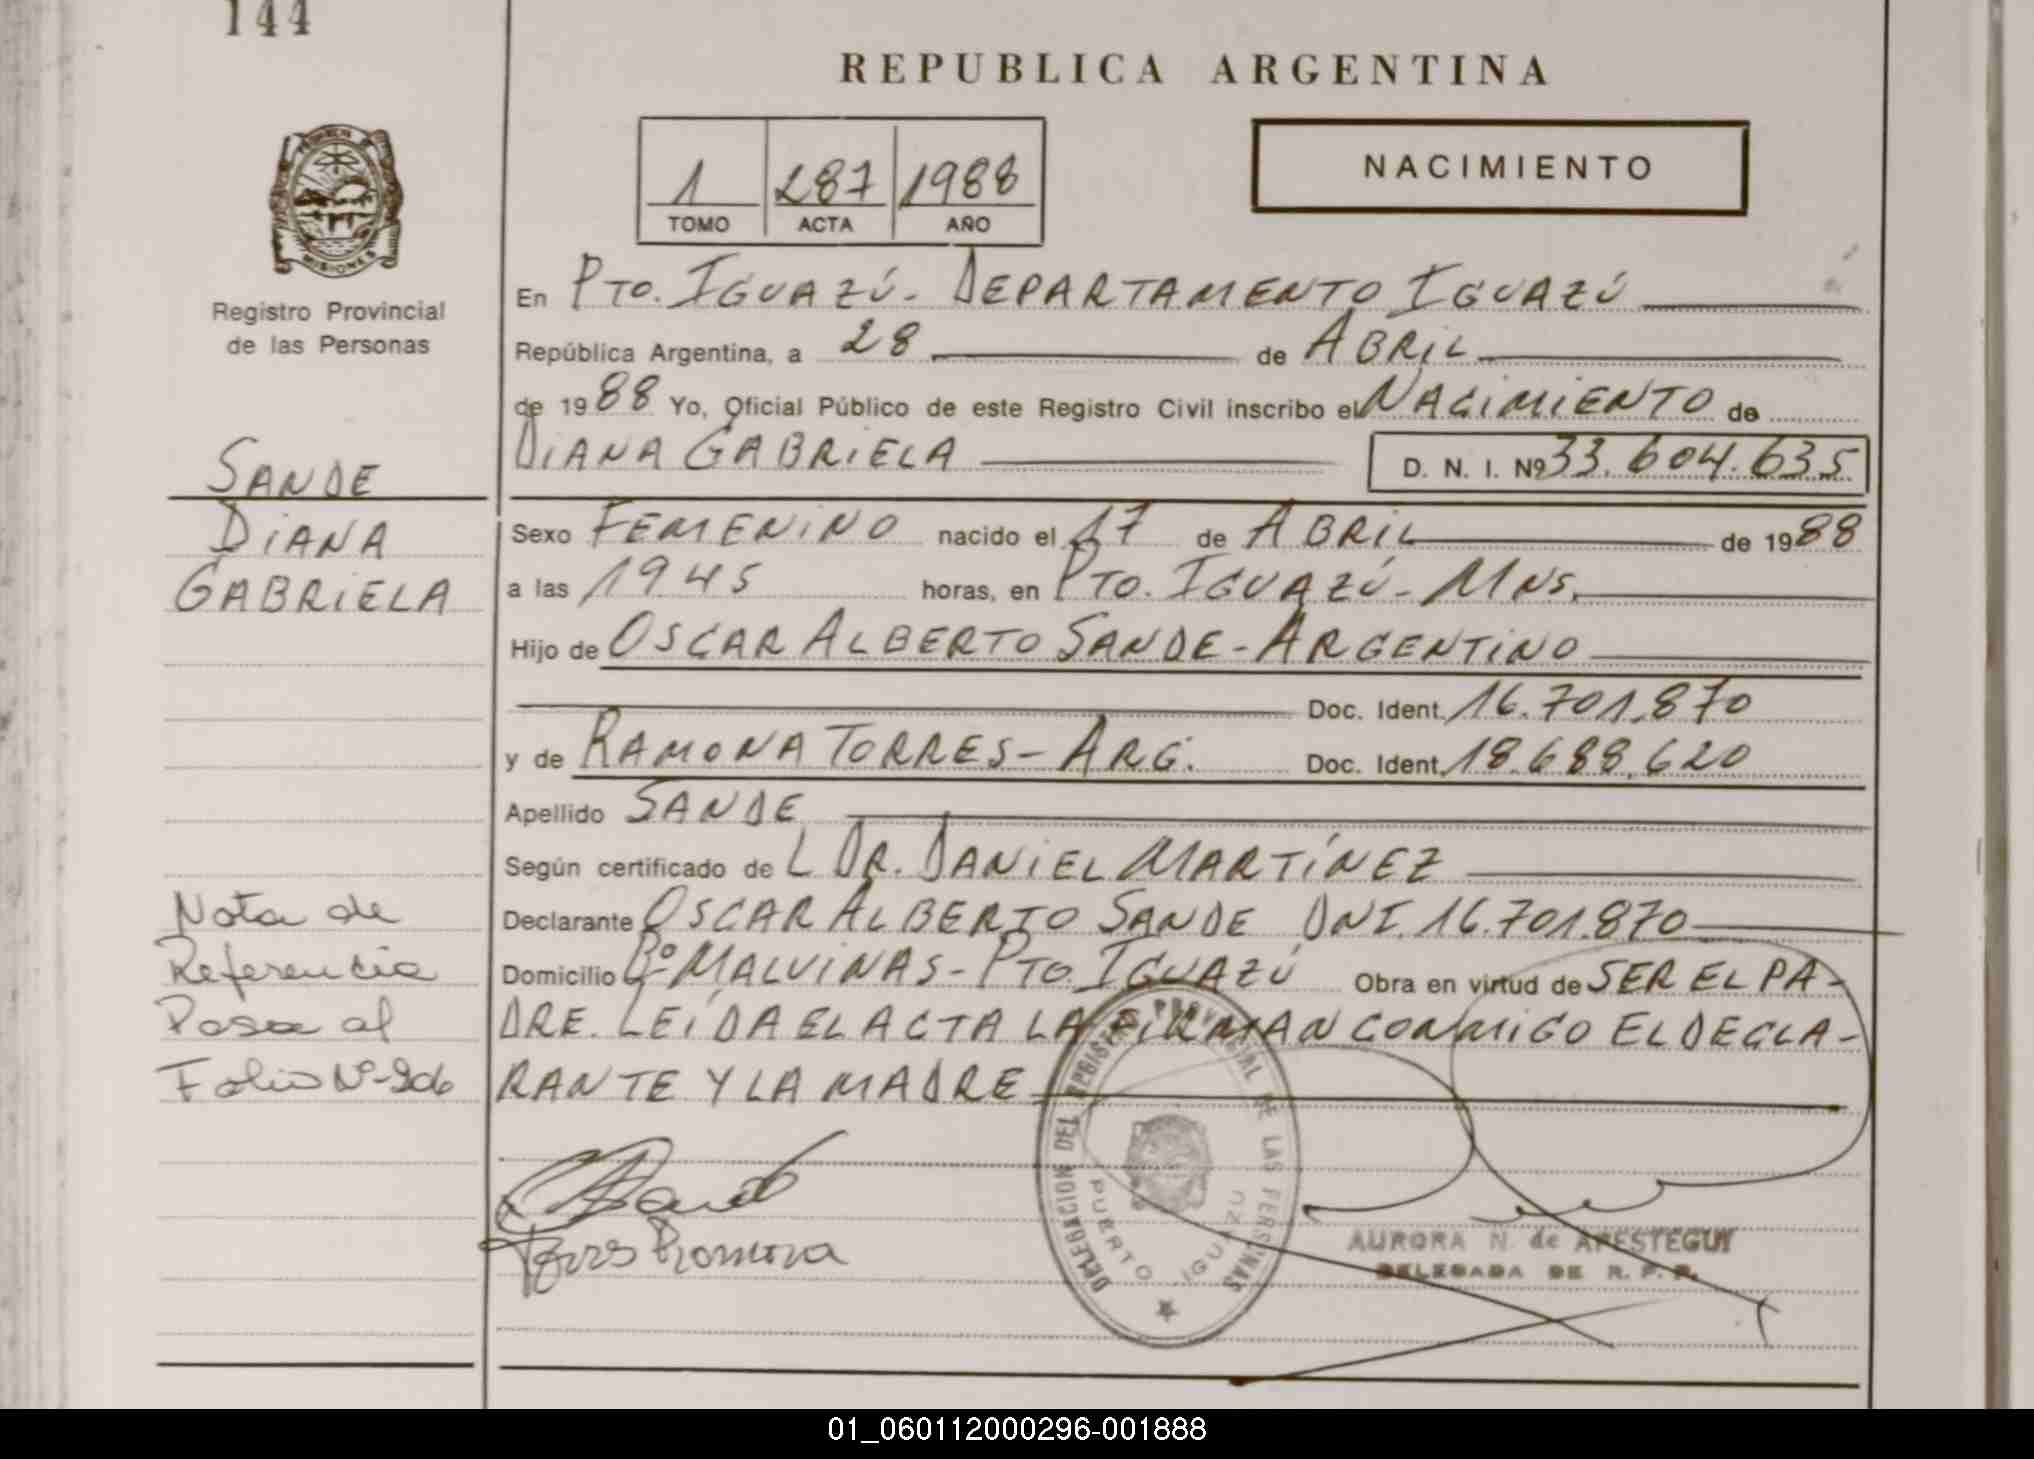 144
REPUBLICA ARGENTINA
MISIONES
Registro Provincial
de las Personas
1 287 1988
TOMO ACTA AÑO
NACIMIENTO
En PTO. IGUAZÚ - DEPARTAMENTO IGUAZÚ
República Argentina, a 28 de ABRIL
de 1988 Yo, Oficial Público de este Registro Civil inscribo el NACIMIENTO de
DIANA GABRIELA D. N. I. Nº 33.604.635
SANDE
DIANA
GABRIELA
Sexo FEMENINO nacido el 17 de ABRIL de 1988
a las 19.45 horas, en PTO. IGUAZÚ - MNS.
Hijo de OSCAR ALBERTO SANDE - ARGENTINO
Doc. Ident. 16.701.870
y de RAMONA TORRES - ARG. Doc. Ident. 18.688.620
Apellido SANDE
Según certificado de L DR. DANIEL MARTÍNEZ
Declarante OSCAR ALBERTO SANDE DNI. 16.701.870
Domicilio Bº MALVINAS - PTO. IGUAZÚ Obra en virtud de SER EL PA-
DRE. LEÍDA EL ACTA LA FIRMAN CONMIGO EL DECLA-
RANTE Y LA MADRE
Nota de
Referencia
Pasa al
Folio Nº 206
Torres Romona
DELEGACION DEL REGISTRO PROVINCIAL DE LAS PERSONAS
PUERTO IGUAZU
AURORA N. de APESTEGUY
DELEGADA DE R. P. P.
01_060112000296-001888